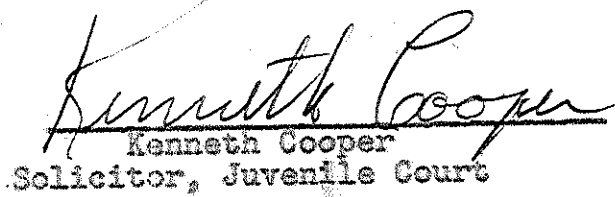 Kenneth Cooper
Kenneth Cooper
Solicitor, Juvenile Court